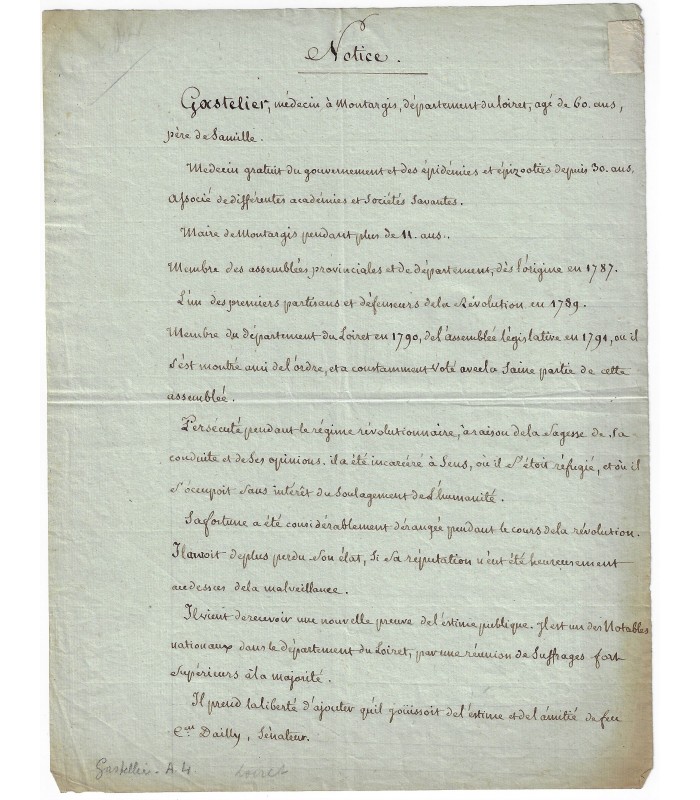 Notice.
Gastelier, médecin, à Montargis, département du loiret, agé de 60. ans,
père de famille.
Médecin gratuit du gouvernement et des épidémies et épizooties depuis 30. ans.
Associé de différentes académies et Sociétés Savantes.
Maire de Montargis pendant plus de 11. ans.
Membre des assemblées provinciales et de département, dès l'origine en 1787.
L'un des premiers partisans et défenseurs de la Révolution en 1789.
Membre du département du Loiret en 1790, de l'assemblée législative en 1791, ou il
s'est montré ami de l'ordre, et a constamment voté avec la Saine partie de cette
assemblée.
Persécuté pendant le régime révolutionnaire, à raison de la Sagesse de Sa
conduite et de Ses opinions. il a été incarcéré à Sens, où il s'étoit réfugié, et où il
s'occupoit Sans intérêt du Soulagement de l'humanité.
Sa fortune a été considérablement dérangée pendant le cours de la révolution.
Il auroit de plus perdu Son état, Si Sa réputation n'eut été heureusement
au dessus de la malveillance.
Il vient de recevoir une nouvelle preuve de l'estime publique. Il est un des Notables
nationaux dans le département du Loiret, par une réunion de Suffrages fort
Supérieurs à la majorité.
Il prend la liberté d'ajouter qu'il joüissoit de l'estime et de l'amitié de feu
C.en Dailly, Sénateur.
Gastellier - A 4. Loiret